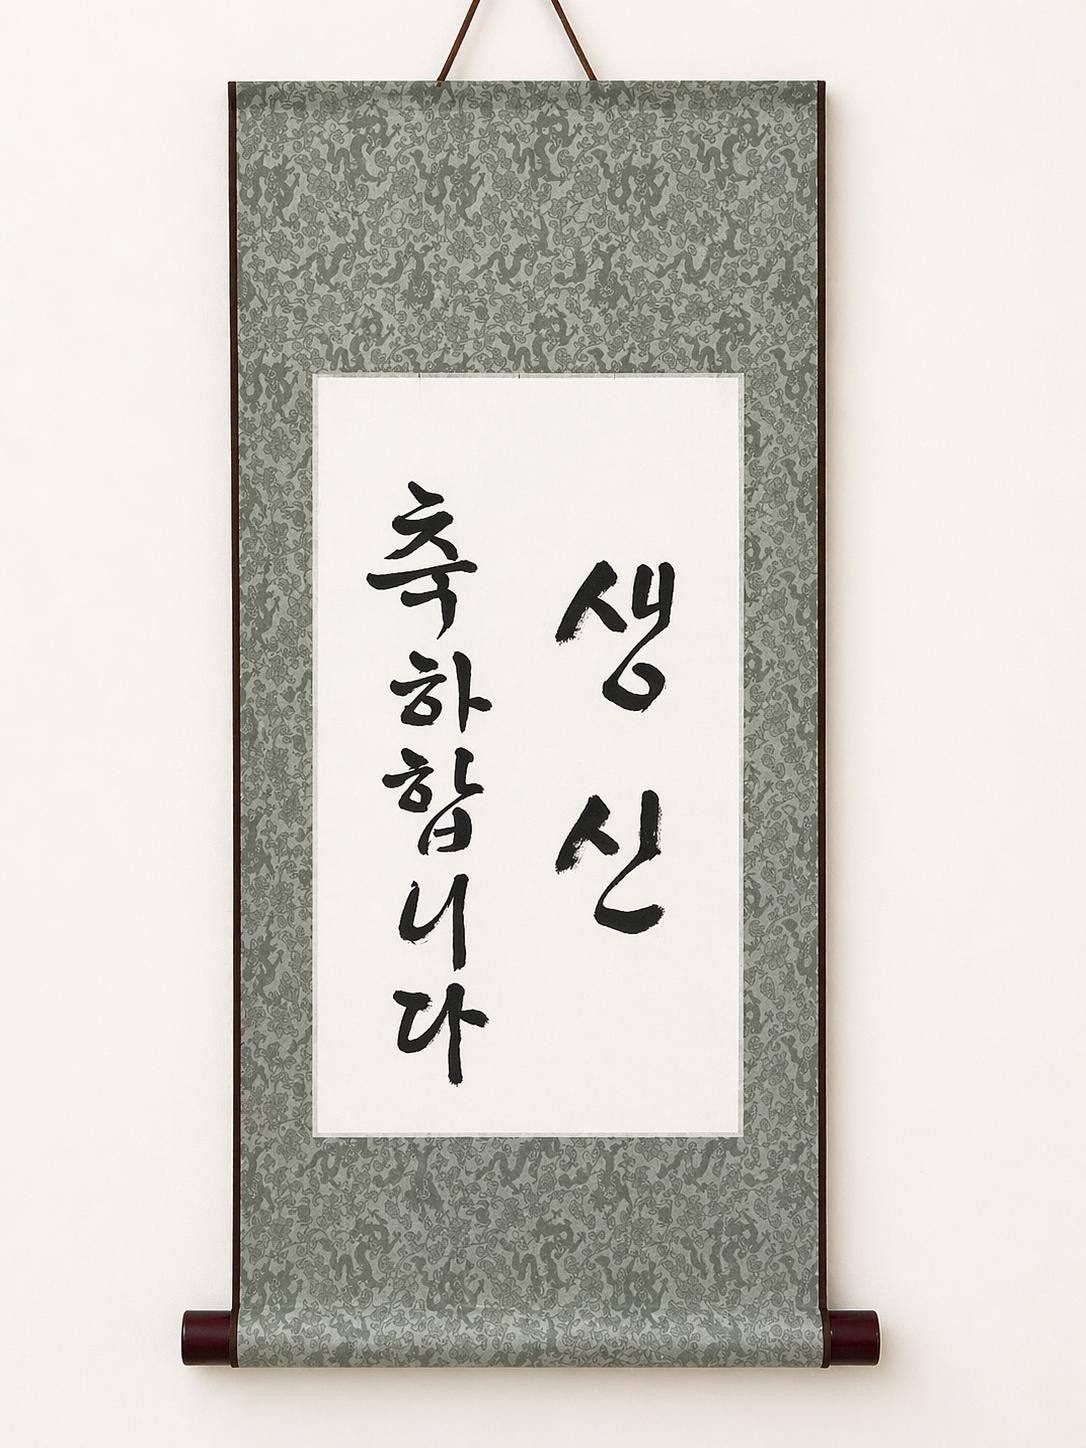 생신
축하합니다